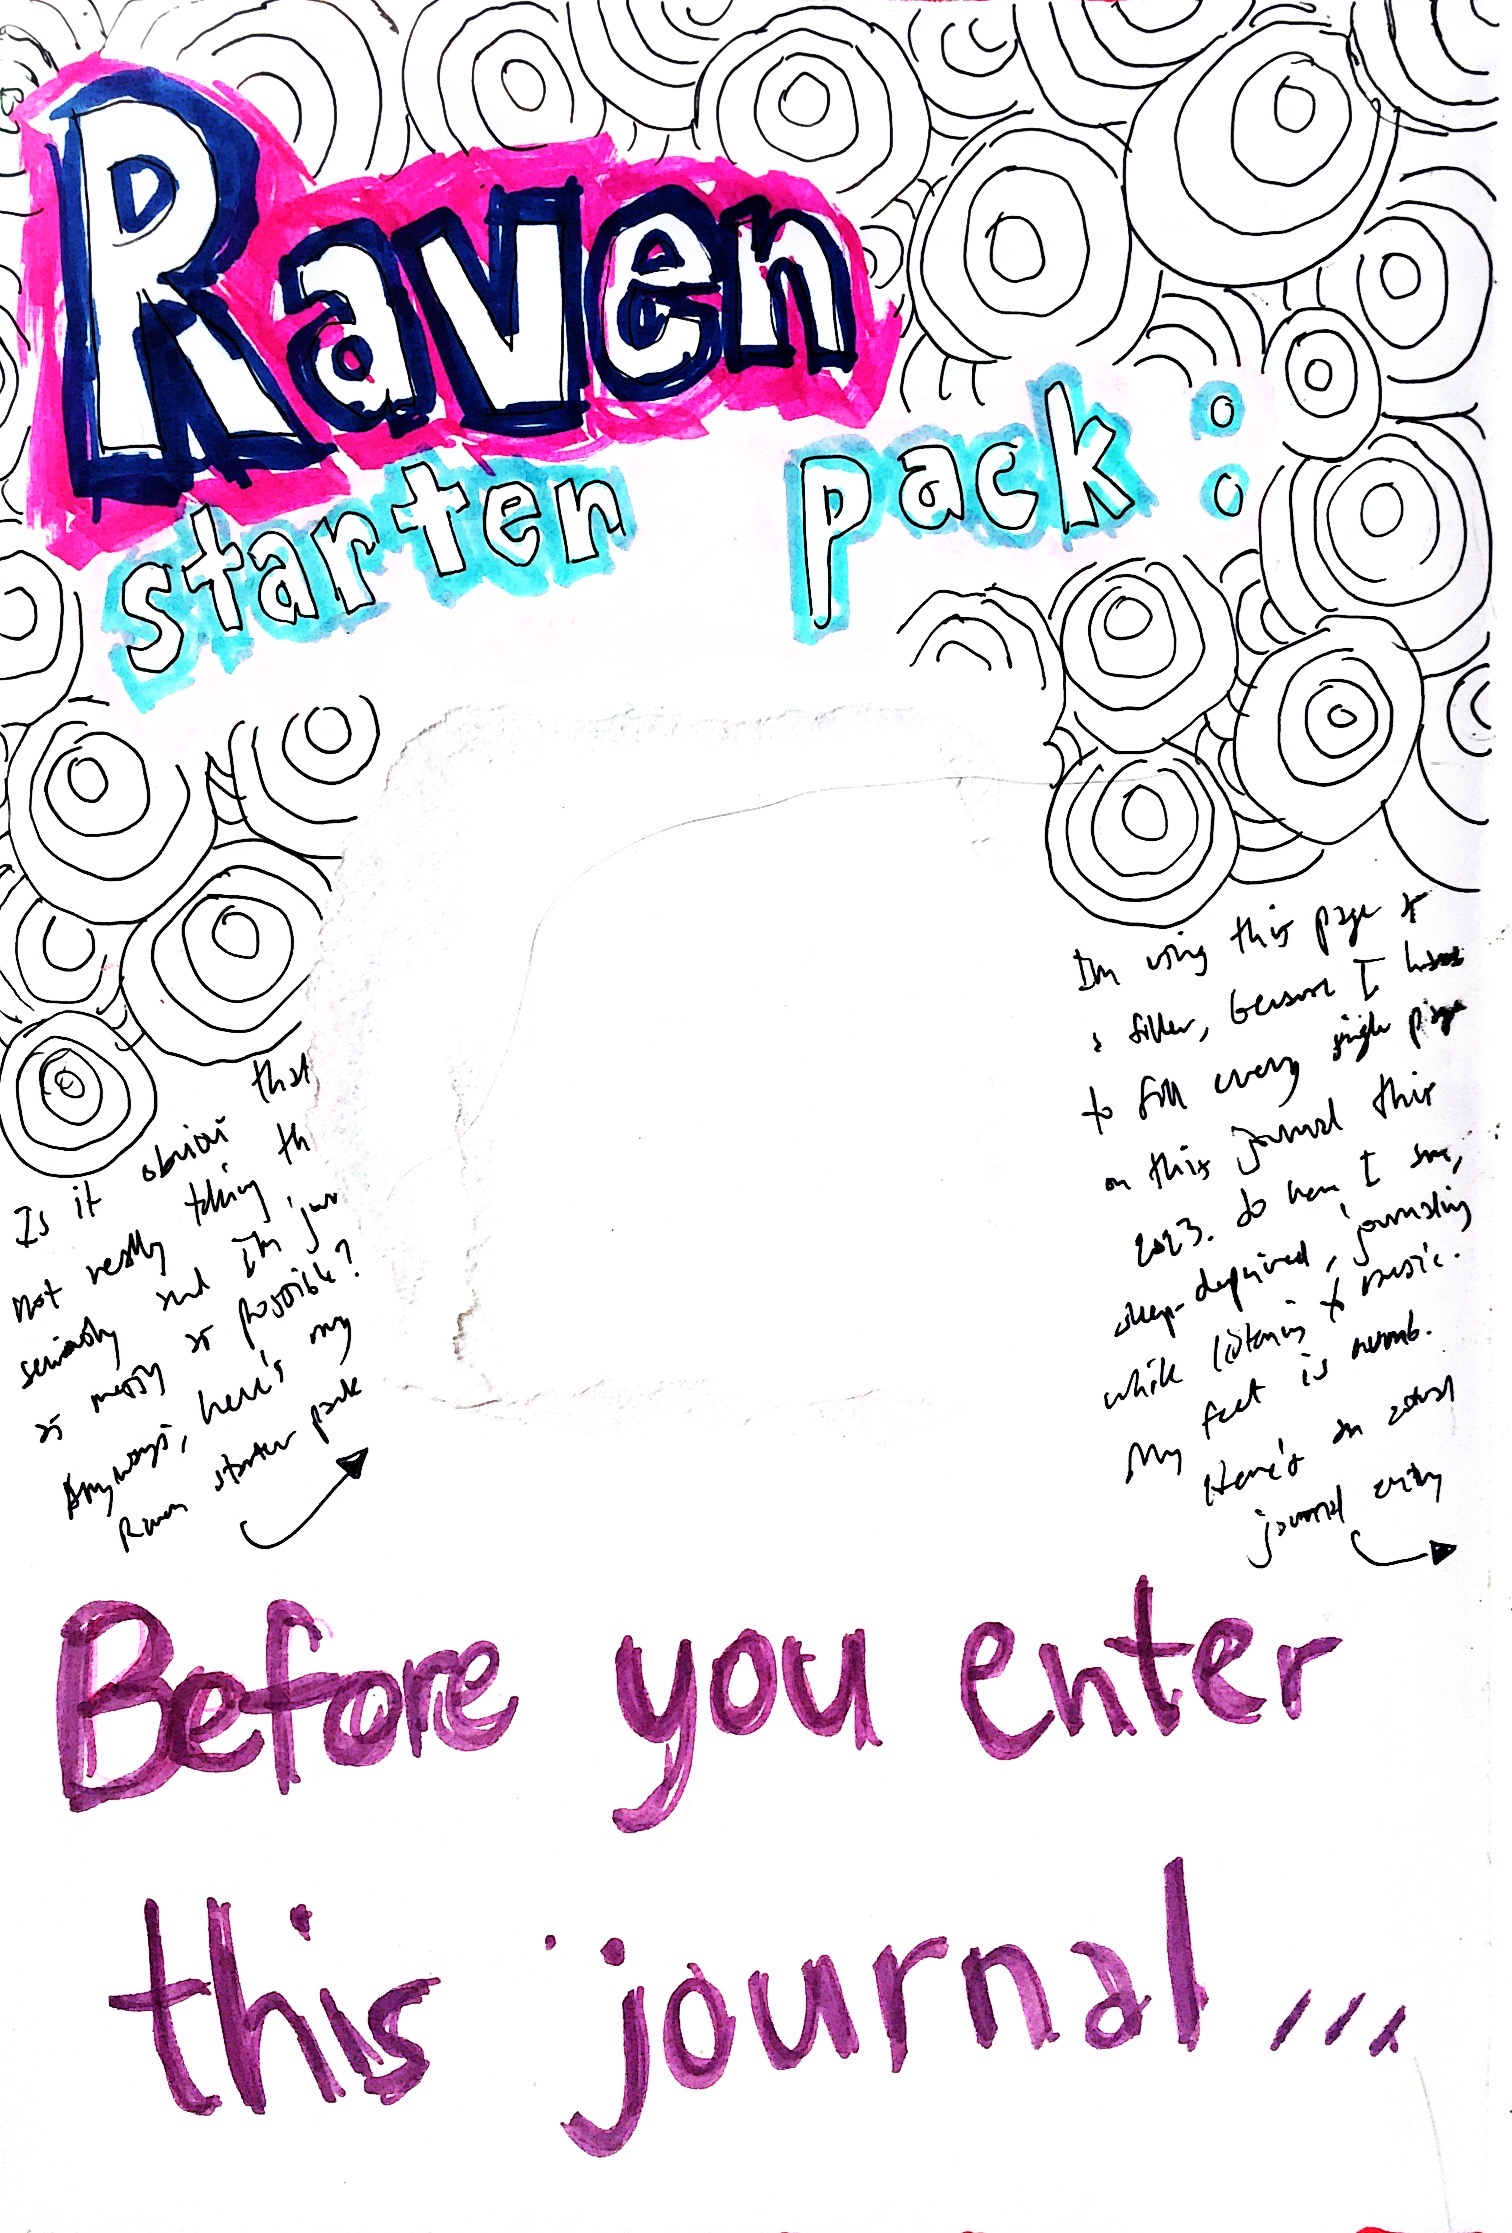 Raven
starter pack:
Is it obvious that
not really taking th
seriously and I'm jus
as messy as possible?
Anyways, here's my
Raven starter pack
I'm using this page as
a filler, because I have
to fill every single page
on this journal this
2023. So here I am,
sleep-deprived, journaling
while listening to music.
My feet is numb.
Here's an actual
journal entry
Before you enter
this journal...